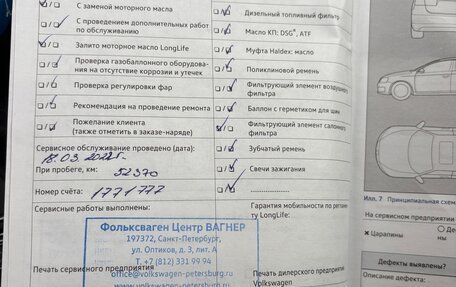 С заменой моторного масла
С проведением дополнительных работ
по обслуживанию
Залито моторное масло LongLife
Проверка газобаллонного оборудова-
ния на отсутствие коррозии и утечек
Проверка регулировки фар
Рекомендация на проведение ремонта
Пожелание клиента
(также отметить в заказе-наряде)
Сервисное обслуживание проведено (дата):
18.03.2022г.
При пробеге, км: 52370
Номер счёта: 1771777
Сервисные работы выполнены:
Фольксваген Центр ВАГНЕР
197372, Санкт-Петербург,
ул. Оптиков, д. 3, лит. А
Т. +7 (812) 331 99 94
office@volkswagen-petersburg.ru
volkswagen-petersburg.ru
Печать сервисного предприятия
Дизельный топливный фильтр
Масло КП: DSG®, ATF
Муфта Haldex: масло
Поликлиновой ремень
Фильтрующий элемент воздушного
фильтра
Баллон с герметиком для шин
Фильтрующий элемент салонного
фильтра
Зубчатый ремень
Свечи зажигания
Гарантия мобильности по регла-
ту LongLife:
Печать дилерского предприятия
Volkswagen
Илл. 7 Принципиальная схема
На сервисном предприятии
Царапины
Дефекты выявлены?
Описание дефекта: